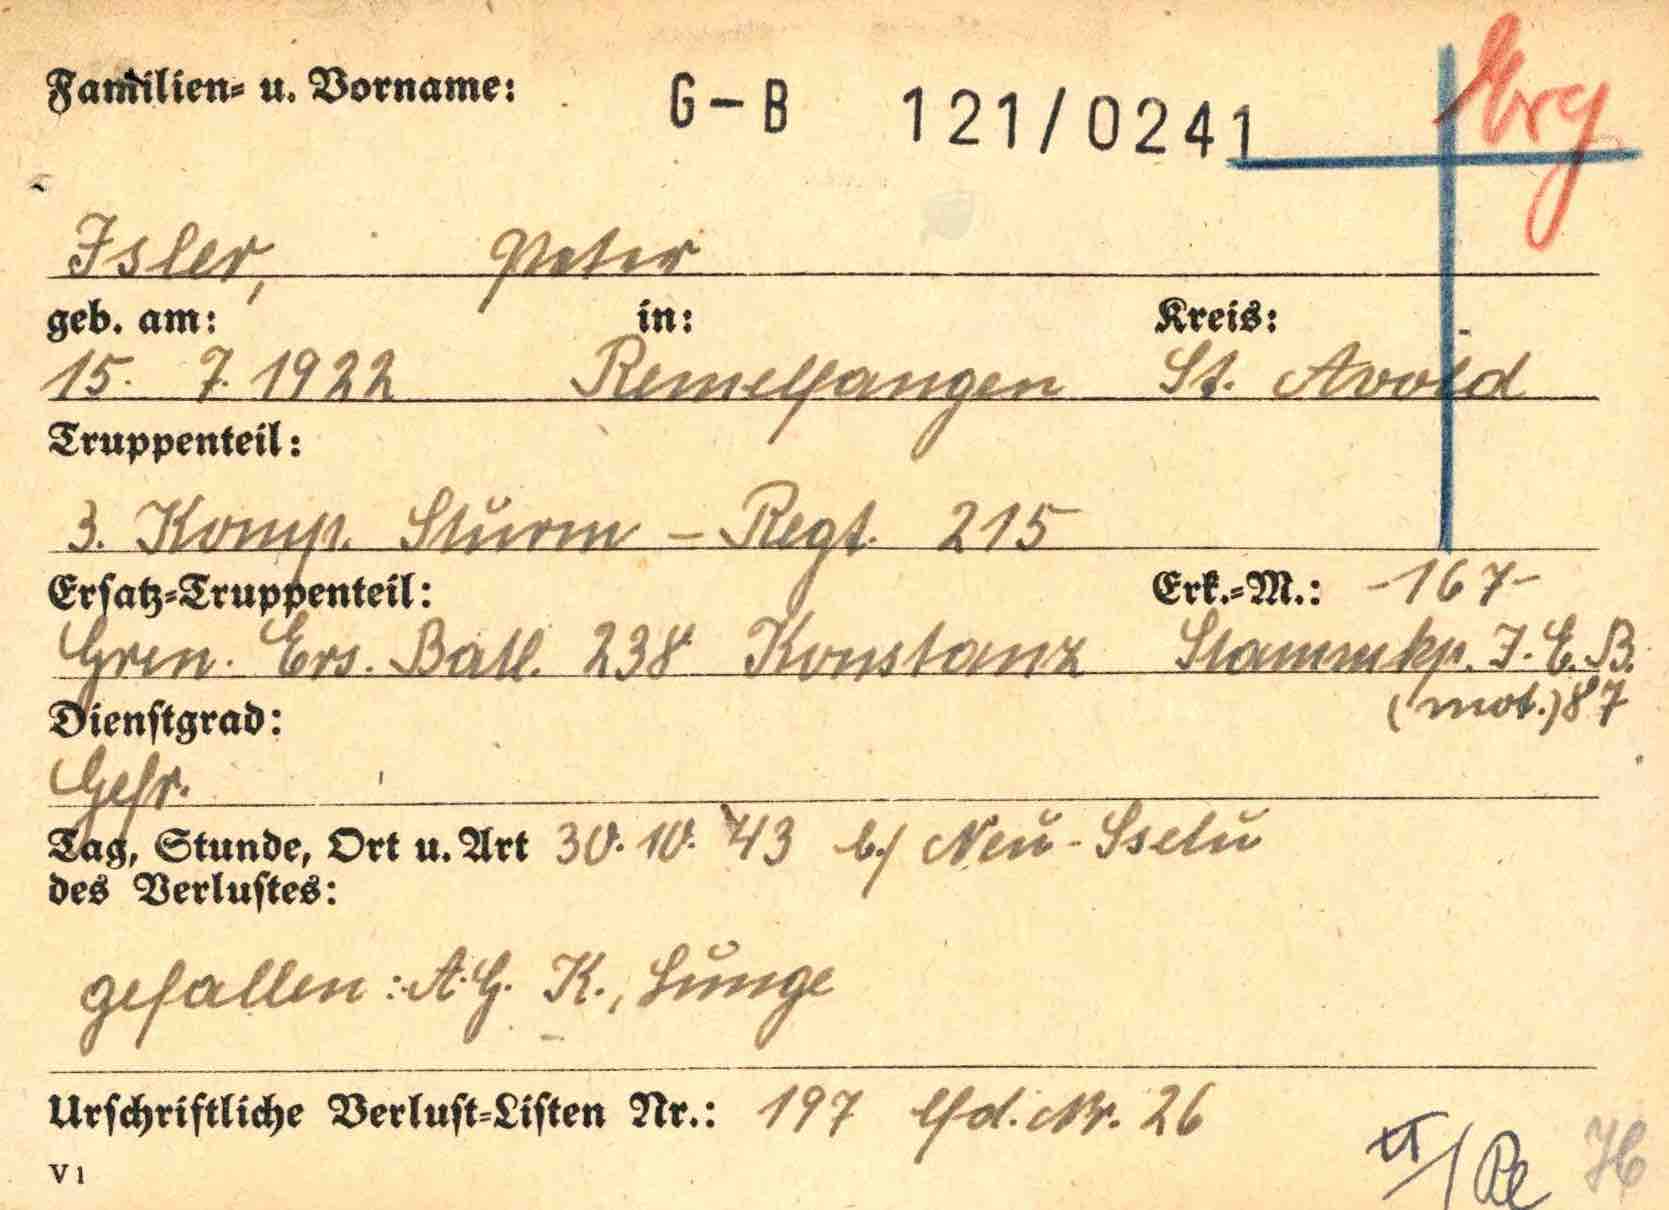 Familien- u. Vorname: G-B 121/0241 Erg
Isler, Peter
geb. am: in: Kreis:
15. 7. 1922 Remelfangen St. Avold
Truppenteil:
3. Komp. Sturm - Regt. 215
Ersatz-Truppenteil: Erk.-M.: -167-
Gren. Ers. Batl. 238 Konstanz Stammkp. I. E. B.
(mot.) 87
Dienstgrad:
Gefr.
Tag, Stunde, Ort u. Art 30. 10. 43 b/ Neu-Sselu
des Verlustes:
gefallen: A. G. K., Lunge
Urschriftliche Verlust-Listen Nr.: 197 lfd. Nr. 26
V 1